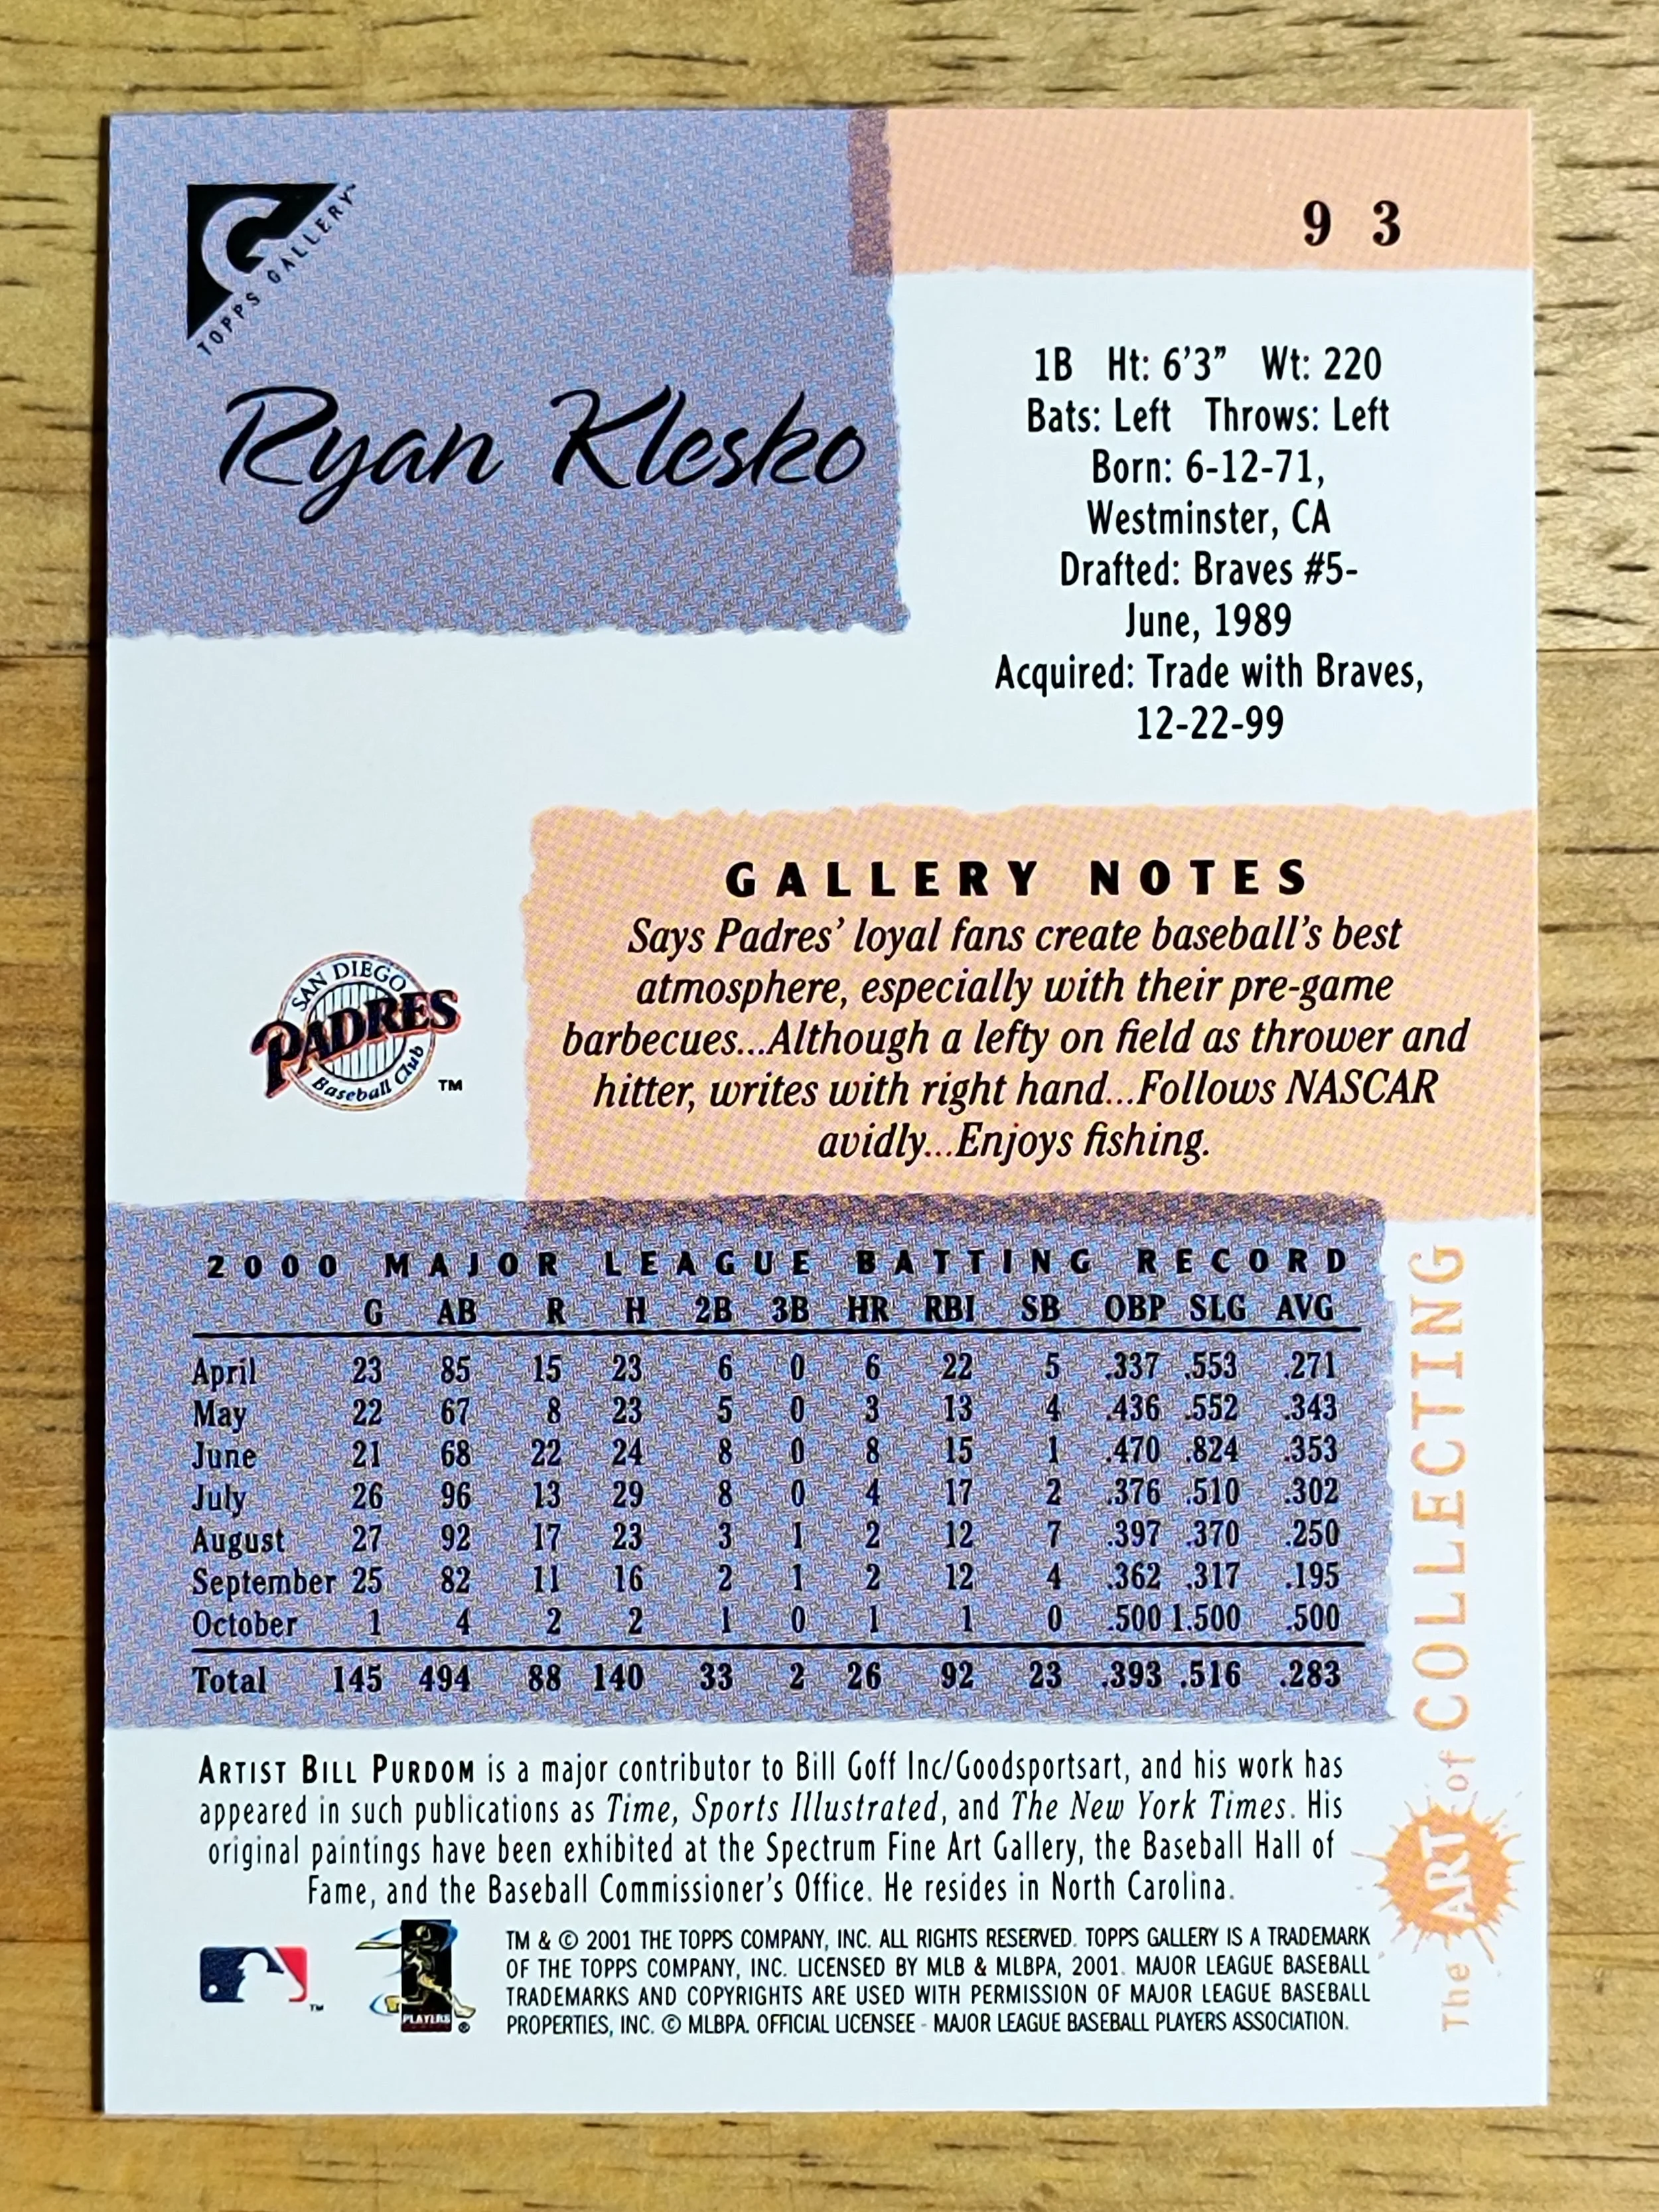 TOPPS GALLERY™
9 3
Ryan Klesko
1B Ht: 6'3" Wt: 220
Bats: Left Throws: Left
Born: 6-12-71,
Westminster, CA
Drafted: Braves #5-
June, 1989
Acquired: Trade with Braves,
12-22-99
GALLERY NOTES
Says Padres' loyal fans create baseball's best
atmosphere, especially with their pre-game
barbecues...Although a lefty on field as thrower and
hitter, writes with right hand...Follows NASCAR
avidly...Enjoys fishing.
SAN DIEGO
PADRES
Baseball Club
TM
2000 MAJOR LEAGUE BATTING RECORD
G AB R H 2B 3B HR RBI SB OBP SLG AVG
April 23 85 15 23 6 0 6 22 5 .337 .553 .271
May 22 67 8 23 5 0 3 13 4 .436 .552 .343
June 21 68 22 24 8 0 8 15 1 .470 .824 .353
July 26 96 13 29 8 0 4 17 2 .376 .510 .302
August 27 92 17 23 3 1 2 12 7 .397 .370 .250
September 25 82 11 16 2 1 2 12 4 .362 .317 .195
October 1 4 2 2 1 0 1 1 0 .500 1.500 .500
Total 145 494 88 140 33 2 26 92 23 .393 .516 .283
The ART of COLLECTING
ARTIST BILL PURDOM is a major contributor to Bill Goff Inc/Goodsportsart, and his work has
appeared in such publications as Time, Sports Illustrated, and The New York Times. His
original paintings have been exhibited at the Spectrum Fine Art Gallery, the Baseball Hall of
Fame, and the Baseball Commissioner's Office. He resides in North Carolina.
TM
PLAYERS
®
TM & © 2001 THE TOPPS COMPANY, INC. ALL RIGHTS RESERVED. TOPPS GALLERY IS A TRADEMARK
OF THE TOPPS COMPANY, INC. LICENSED BY MLB & MLBPA, 2001. MAJOR LEAGUE BASEBALL
TRADEMARKS AND COPYRIGHTS ARE USED WITH PERMISSION OF MAJOR LEAGUE BASEBALL
PROPERTIES, INC. © MLBPA. OFFICIAL LICENSEE - MAJOR LEAGUE BASEBALL PLAYERS ASSOCIATION.